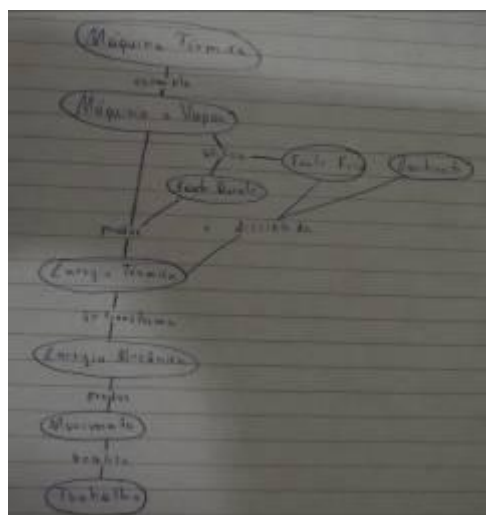 Máquina Térmica
exemplo
Máquina a Vapor
utiliza
Fonte Fria
Ambiente
Fonte Quente
produz
é dissipada
Energia Térmica
transforma
Energia Mecânica
produz
Movimento
realiza
Trabalho